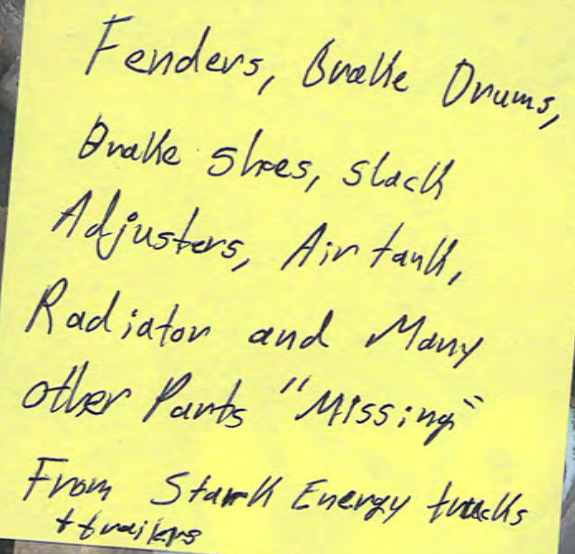 Fenders, Brake Drums,
Brake Shoes, slack
Adjusters, Air tank,
Radiator and Many
other Parts "Missing"
From Stark Energy trucks
+ trailers